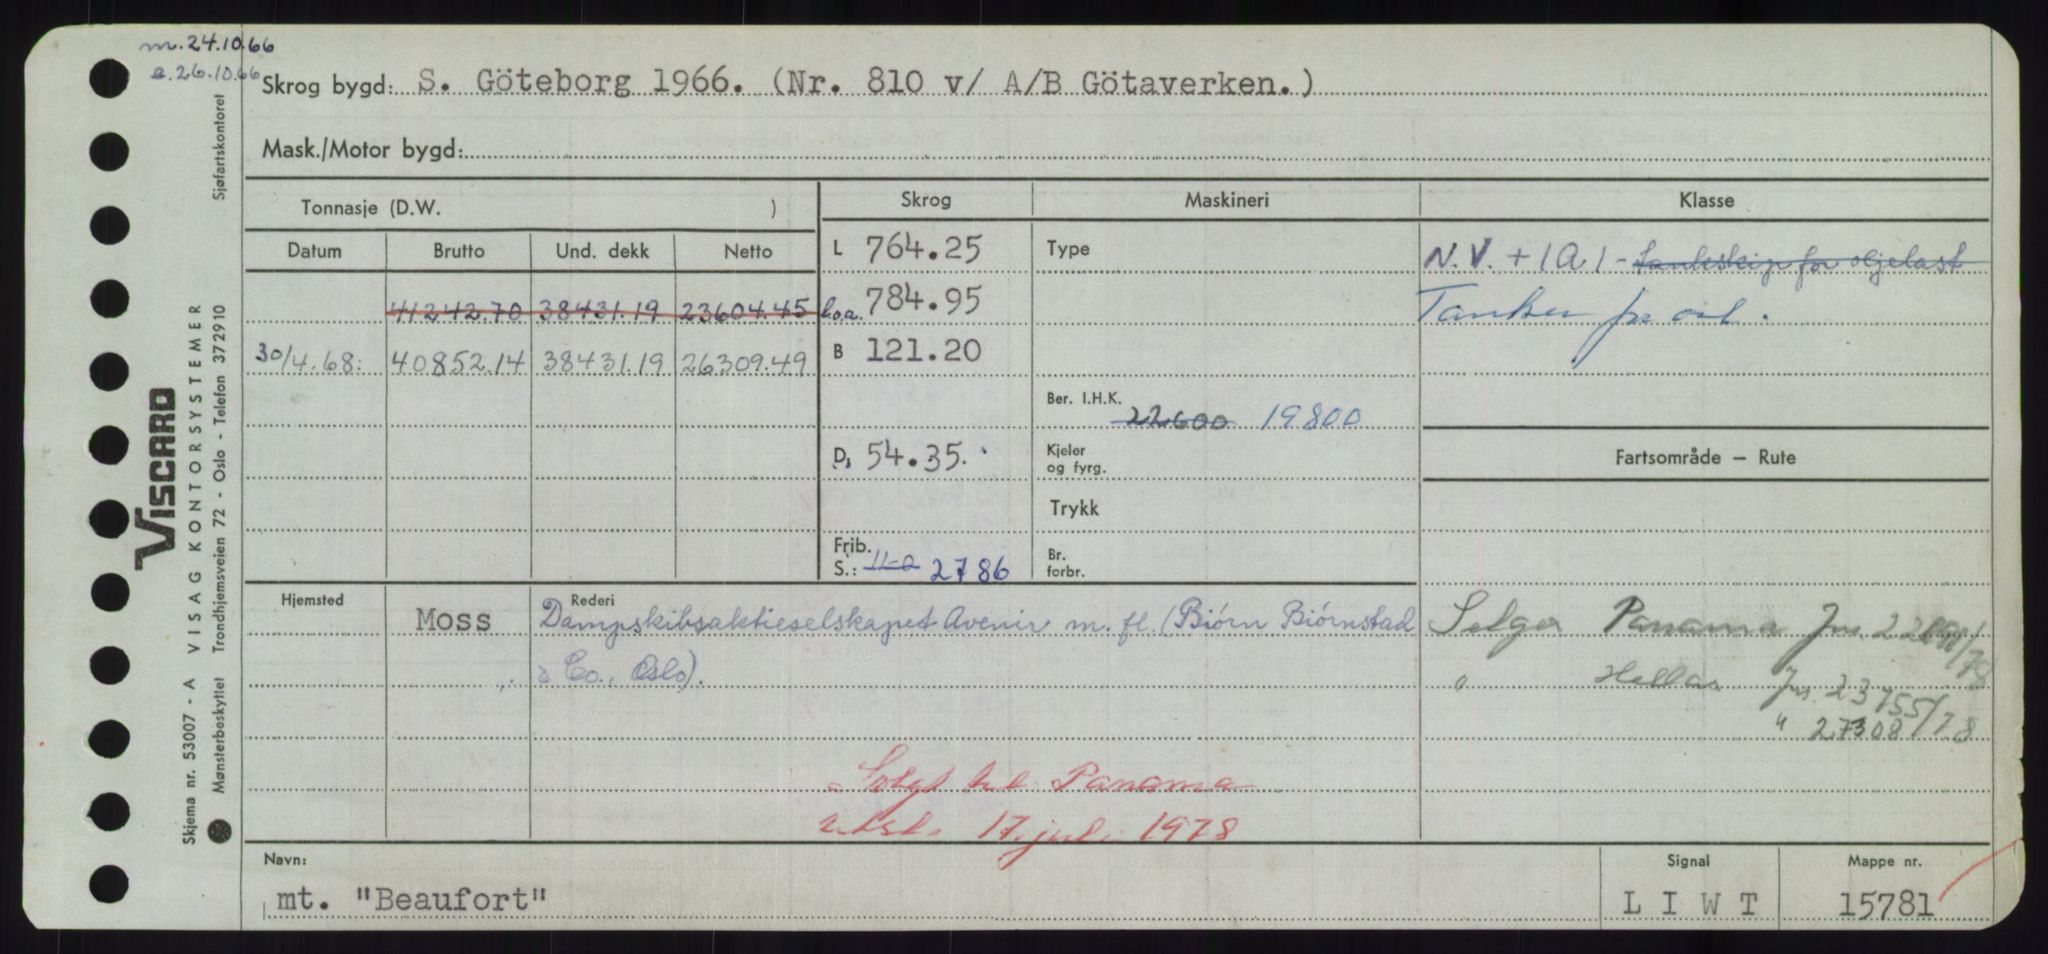 m.24.10.66
a.26.10.66
Skrog bygd: S. Göteborg 1966. (Nr. 810 v/ A/B Götaverken.)
Mask./Motor bygd:
Tonnasje (D.W. )
Skrog
Maskineri
Klasse
Datum
Brutto
Und. dekk
Netto
L 764.25
Type
N.V. + 1A1 - tankskip for oljelast
41242.70 38431.19 23604.45
l.o.a. 784.95
Tanker for oil.
30/4.68: 40852.14 38431.19 26309.49
B 121.20
Ber. I.H.K. 22600 19800
D, 54.35.
Kjeler og fyrg.
Fartsområde — Rute
Trykk
Frib. S.: 11-2 2786
Br. forbr.
Hjemsted
Moss
Rederi
Dampskibsaktieselskapet Avenir m. fl. (Biørn Biørnstad
& Co., Oslo).
Selger Panama Jnr.
" Hellas Jnr. 23755/78
" 27308/78
Solgt til Panama
17. juli 1978
Navn:
mt. "Beaufort"
Signal
L I W T
Mappe nr.
15781
Sjøfartskontoret
VISCARD
VISAG KONTORSYSTEMER
Trondhjemsveien 72 - Oslo - Telefon 372910
Skjema nr. 53007 - A
Mønsterbeskyttet